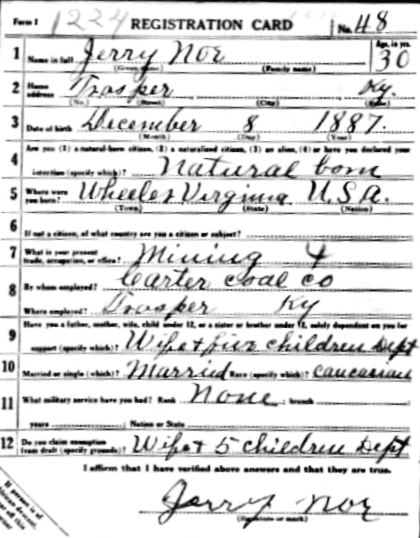 Form 1 1224 REGISTRATION CARD No. 48
1 Name in full Jerry Noe Age, in yrs. 30
(Given name) (Family name)
2 Home address Trosper Ky.
(No.) (Street) (City) (State)
3 Date of birth December 8 1887.
(Month) (Day) (Year)
4 Are you (1) a natural-born citizen, (2) a naturalized citizen, (3) an alien, (4) or have you declared your
intention (specify which)? Natural born
5 Where were you born? Wheeler Virginia U.S.A.
(Town) (State) (Nation)
6 If not a citizen, of what country are you a citizen or subject?
7 What is your present trade, occupation, or office? Mining
8 By whom employed? Carter Coal Co
Where employed? Trosper Ky
9 Have you a father, mother, wife, child under 12, or a sister or brother under 12, solely dependent on you for
support (specify which)? Wife & five children Dept
10 Married or single (which)? Married Race (specify which)? Caucasian
11 What military service have you had? Rank None ; branch
years ; Nation or State
12 Do you claim exemption from draft (specify grounds)? Wife & 5 children Dept
I affirm that I have verified above answers and that they are true.
Jerry Noe
(Signature or mark)
If person is of